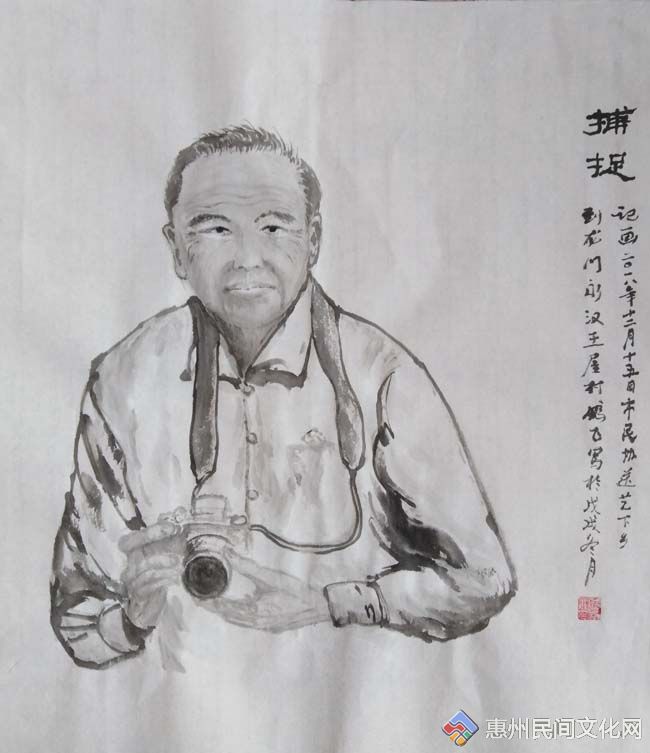 捕捉
记画二〇一八年十二月十五日市民协送艺下乡
到龙门永汉王屋村鹤飞写於戊戌冬月
惠州民间文化网